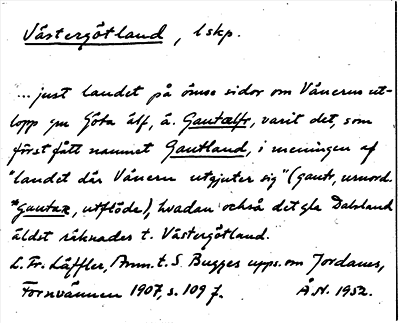 Västergötland, lskp.
... just landet på ömse sidor om Vänerns ut-
lopp gm Göta älf, ä. Gautælfr, varit det, som
först fått namnet Gautland, i meningen af
"landet där Vänern utgjuter sig" (gautr, urnord.
*gautaz, utflöde), hvadan också det gla Dalsland
äldst räknades t. Västergötland.
L. Fr. Läffler, Anm. t. S. Bugges upps. om Jordanes,
Fornvännen 1907, s. 109 f. Å.N. 1952.